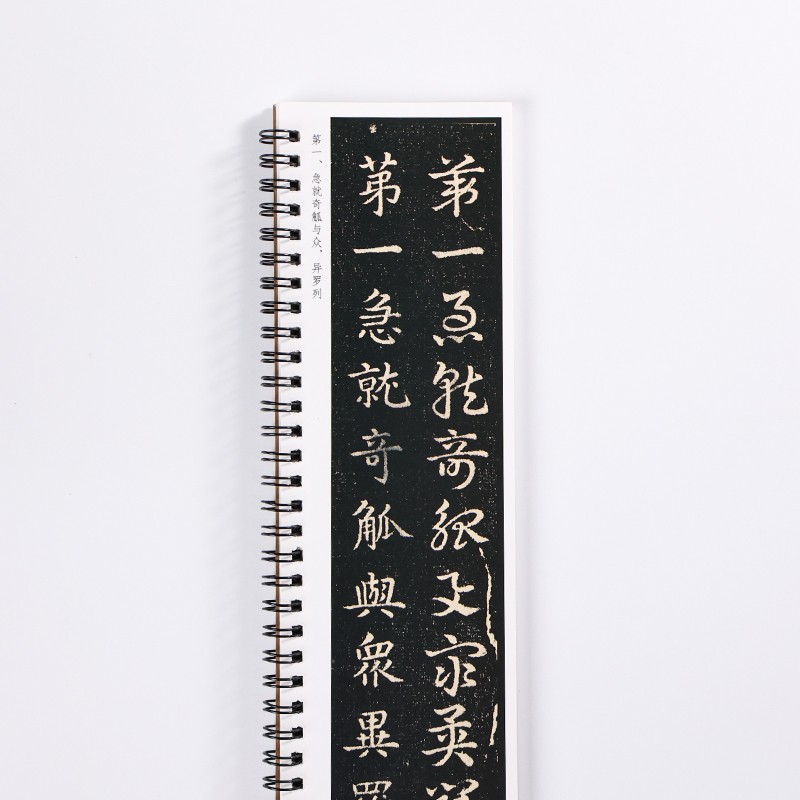 第一急就奇觚與眾異
第一急就奇觚與眾異羅
第一、急就奇觚与众,异罗列